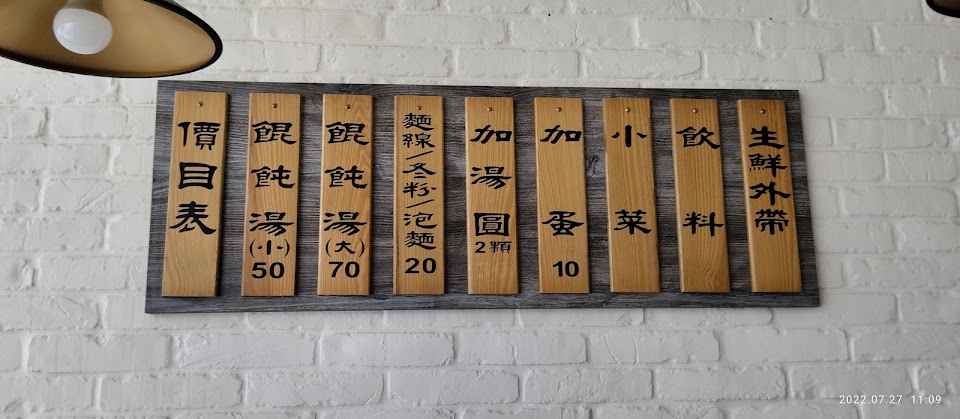 價目表
餛飩湯(小)50
餛飩湯(大)70
麵線/冬粉/泡麵20
加湯圓2顆
加蛋10
小菜
飲料
生鮮外帶
2022.07.27 11:09